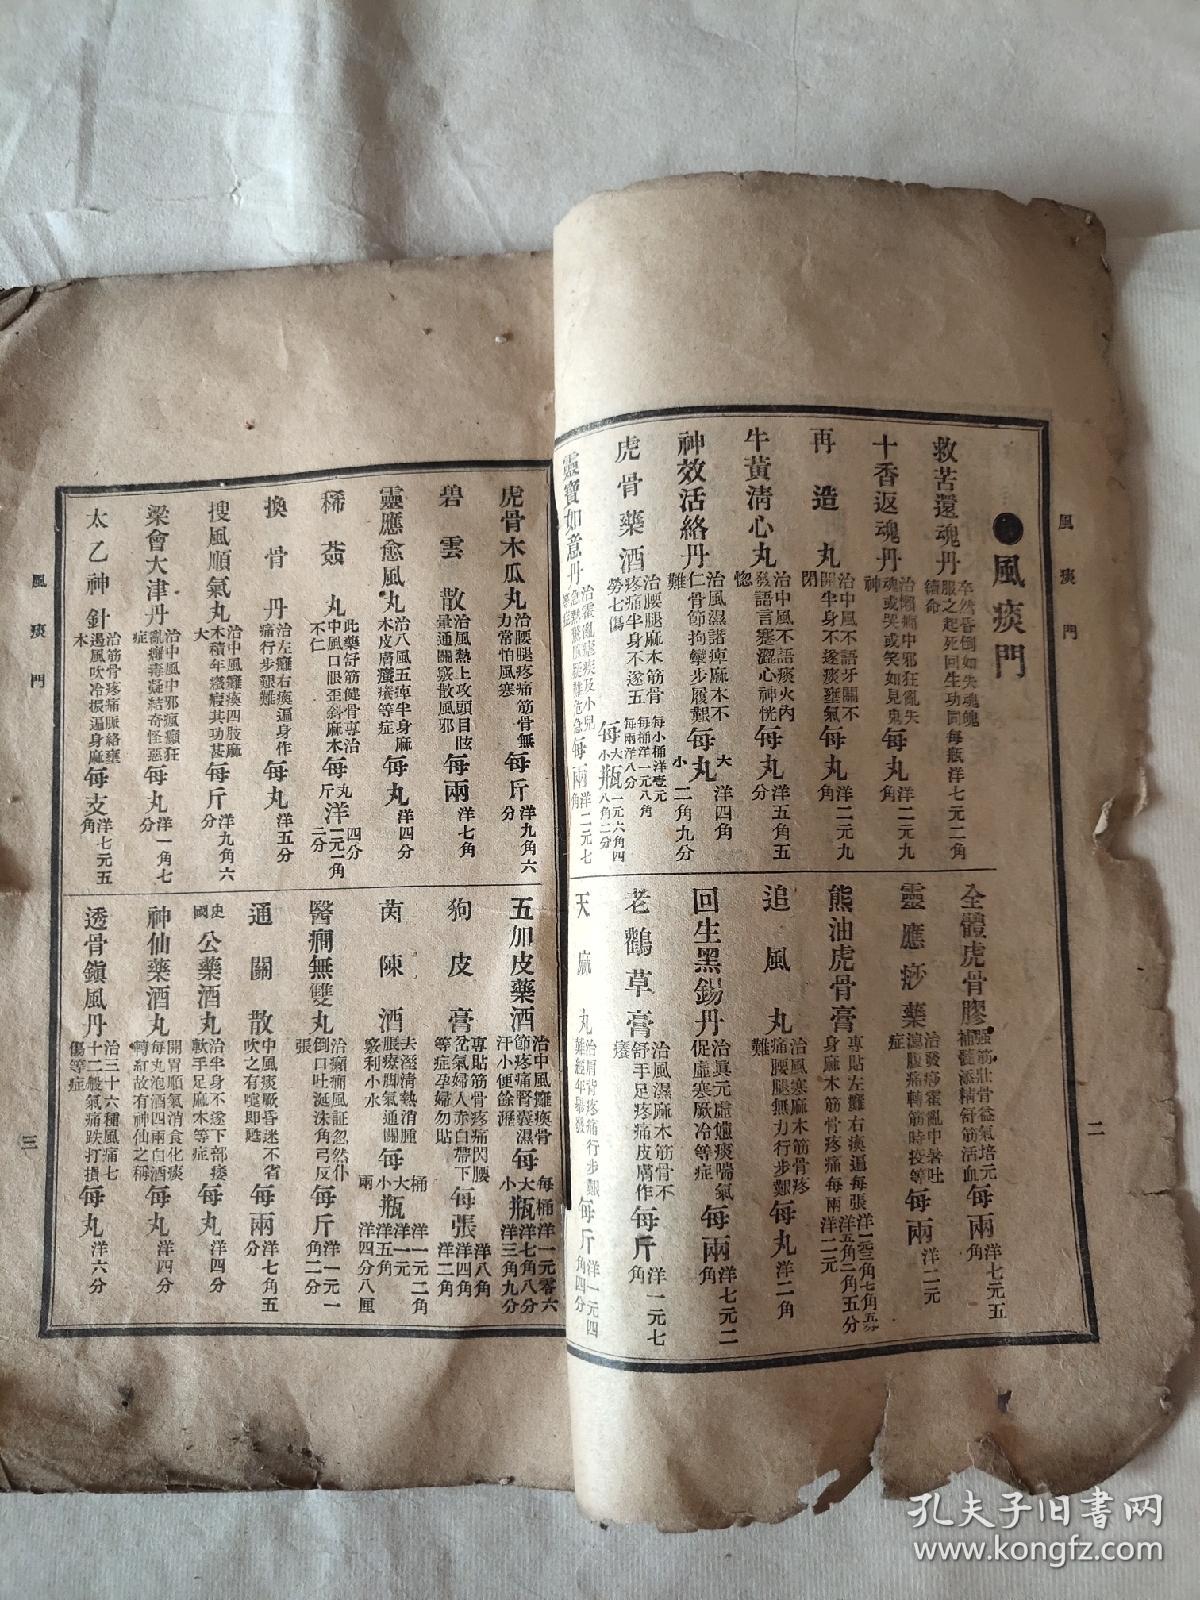 風痰門
二
風痰門
救苦還魂丹 卒然昏倒如失魂魄服之起死回生功同續命 每瓶洋七元二角
十香返魂丹 治懶痛中邪狂亂失魂或哭或笑如見鬼神 每丸洋二元九角
再造丸 治中風不語牙關不開半身不遂痰壅氣閉 每丸洋二元九角
牛黃清心丸 治中風不語痰火內發語言蹇澀心神恍惚 每丸洋五角五分
神效活絡丹 治風濕諸痺麻木不仁骨節拘攣步履艱難 每丸大洋四角小二角九分
虎骨藥酒 治腰腿麻木筋骨疼痛半身不遂五勞七傷 每小桶洋壹元每桶洋一元八角每兩洋八分每大瓶一元六角四小八角二分
靈寶如意丹 每兩洋二元七角
全體虎骨膠 強筋壯骨益氣培元補髓添精舒筋活血 每兩洋七元五角
靈應痧藥 治發痧霍亂中暑吐瀉腹痛轉筋時疫等症 每兩洋二元
熊油虎骨膏 專貼左癱右瘓遍身麻木筋骨疼痛
追風丸 治風寒麻木筋骨疼痛腰腿無力行步艱難 每丸洋二角
回生黑錫丹 治真元虛憊痰喘氣促虛寒厥冷等症 每兩洋七元二角
老鸛草膏 治風濕麻木筋骨不舒手足疼痛皮膚作癢 每斤洋一元七角
天麻丸 治肩背疼痛行步艱難經年舉發 每斤洋一元四角四分
虎骨木瓜丸 治腰腿疼痛筋骨無力常怕風寒 每斤洋九角六分
碧雲散 治風熱上攻頭目眩暈通關竅散風邪 每兩洋七角
靈應愈風丸 治八風五痺半身麻木皮膚癢等症 每丸洋四分
稀薟丸 此藥舒筋健骨專治中風口眼歪斜麻木不仁 每丸四分斤洋一元二角二分
換骨丹 治左癱右瘓遍身作痛行步艱難 每丸洋五分
搜風順氣丸 治中風癱瘓四肢麻木積年癮寢其功甚大 每斤洋九角六分
梁會大津丹 治中風中邪瘋癲狂亂癰毒凝結奇怪惡症 每丸洋一角七分
太乙神針 治筋骨疼痛脈絡壅遏風吹冷振遍身麻木 每支洋七元五角
五加皮藥酒 治中風癱瘓骨節疼痛腎囊濕汗小便餘瀝 每桶洋一元零六大瓶洋七角八分小洋三角九分
狗皮膏 專貼筋骨疼痛閃腰岔氣婦人赤白帶下等症孕婦勿貼 每張洋八角洋四角洋二角
茵陳酒 去溼清熱消腫脹療脚氣通關竅利小水 桶洋一元二角每大瓶洋一元小洋五角兩洋四分八厘
醫癇無雙丸 治癲癇風証忽然仆倒口吐涎沫角弓反張 每斤洋一元一角二分
通關散 中風痰厥昏迷不省吹之有嚏即甦 每兩洋七角五分
史國公藥酒丸 治半身不遂下部痿軟手足麻木等症 每丸洋四分
神仙藥酒丸 開胃順氣消食化痰每丸泡酒四兩白酒轉紅故有神仙之稱 每丸洋四分
透骨鎮風丹 治三十六種風痛七十二般氣痛跌打損傷等症 每丸洋六分
風痰門
三
孔夫子旧书网
www.kongfz.com